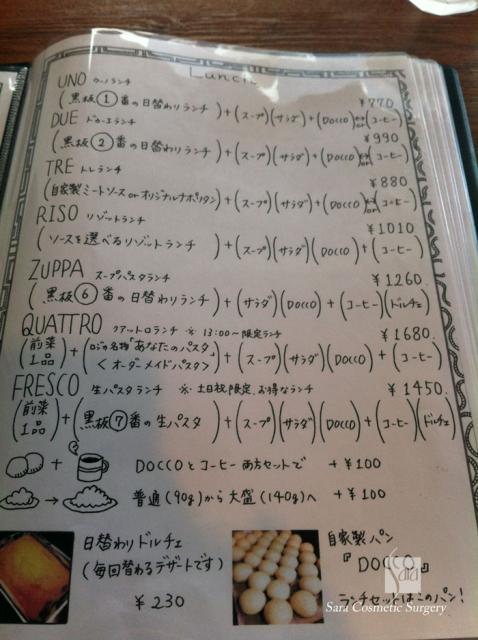 Lunch
UNO ウーノランチ ¥770
(黒板①番の日替わりランチ)+(スープ)(サラダ)+(DOCCO)or(コーヒー)
DUE ドゥーエランチ ¥990
(黒板②番の日替わりランチ)+(スープ)(サラダ)+(DOCCO)or(コーヒー)
TRE トレランチ ¥880
(自家製ミートソース or オリジナルナポリタン)+(スープ)(サラダ)+(DOCCO)or(コーヒー)
RISO リゾットランチ ¥1010
(ソースを選べるリゾットランチ)+(スープ)(サラダ)(DOCCO)+(コーヒー)
ZUPPA スープパスタランチ ¥1260
(黒板⑥番の日替わりランチ)+(サラダ)(DOCCO)+(コーヒー)(ドルチェ)
QUATTRO クアットロランチ ※13:00〜限定ランチ ¥1680
(前菜1品)+(ロジの名物"あなたのパスタ" <オーダーメイドパスタ>)+(スープ)(サラダ)(DOCCO)+(コーヒー)
FRESCO 生パスタランチ ※土日祝限定、お得なランチ ¥1450
(前菜1品)+(黒板⑦番の生パスタ)+(スープ)(サラダ)(DOCCO)+(コーヒー)(ドルチェ)
+ DOCCOとコーヒー両方セットで +¥100
→ 普通(90g)から大盛(140g)へ +¥100
日替わりドルチェ
(毎回替わるデザートです)
¥230
自家製パン
『DOCCO』
ランチセットはこのパン!
Sara
Sara Cosmetic Surgery